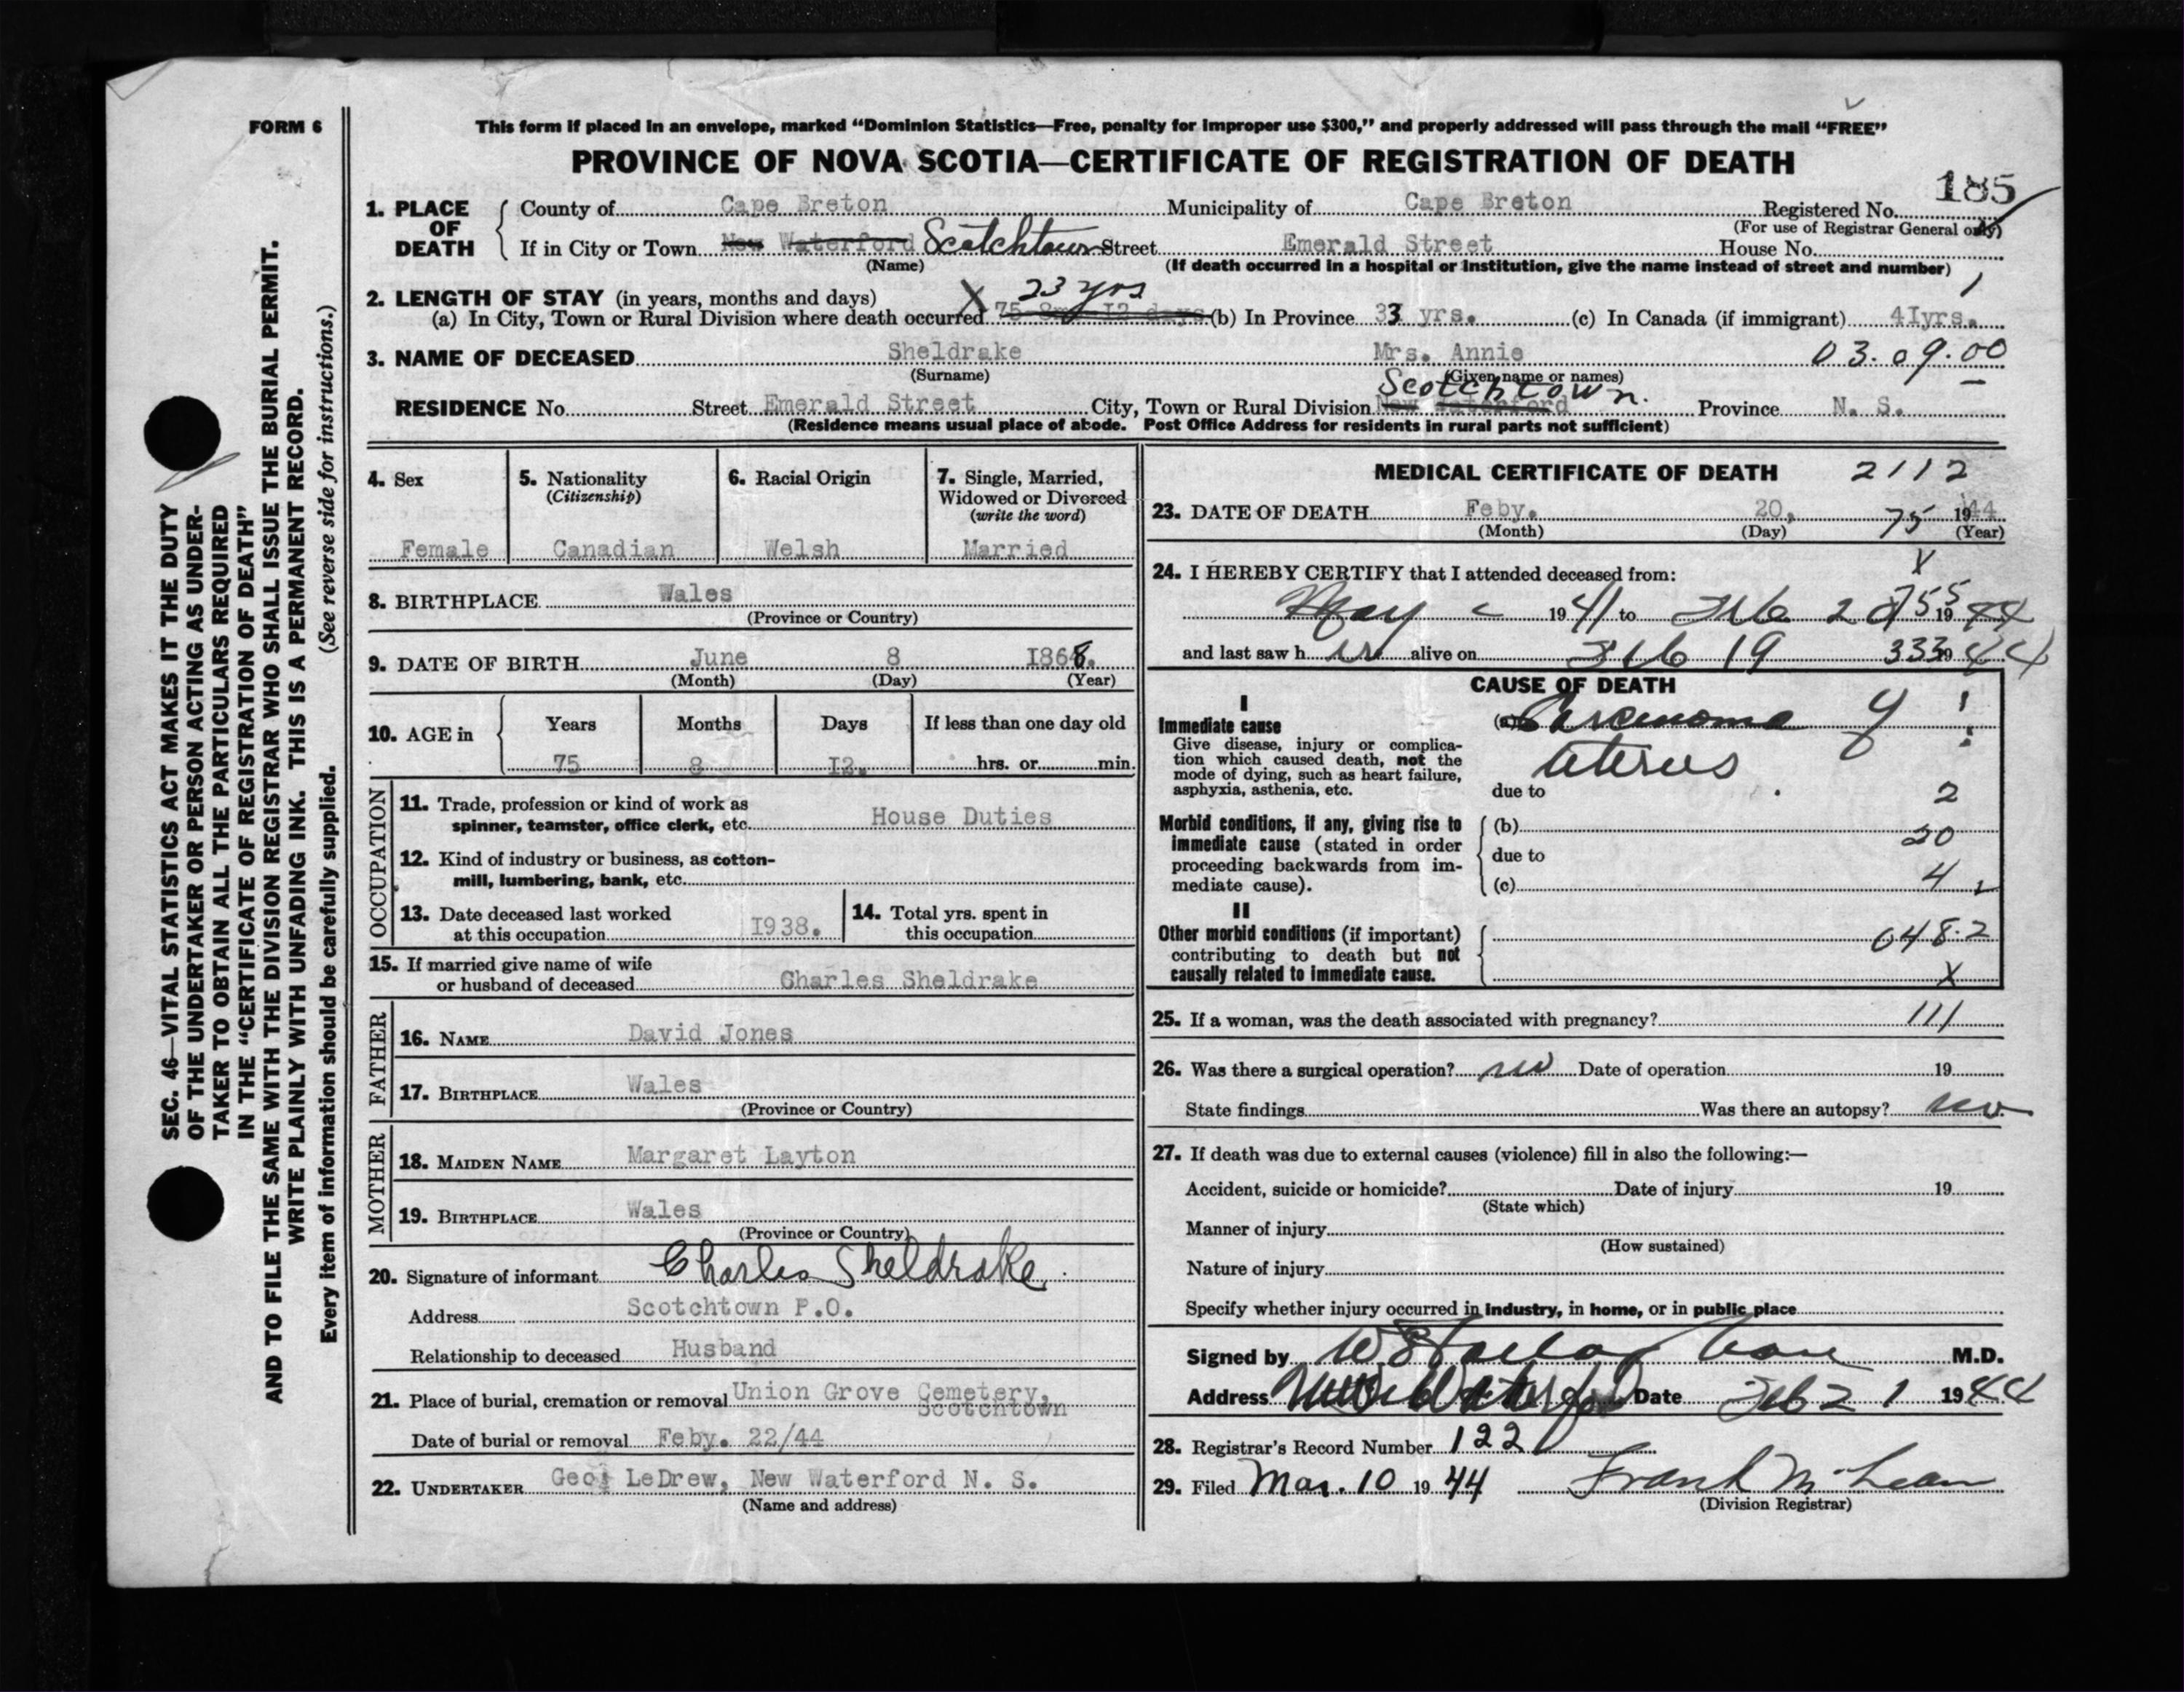 FORM 6
This form if placed in an envelope, marked “Dominion Statistics—Free, penalty for improper use $300,” and properly addressed will pass through the mail “FREE”
PROVINCE OF NOVA SCOTIA—CERTIFICATE OF REGISTRATION OF DEATH
185
1. PLACE OF DEATH
County of Cape Breton Municipality of Cape Breton Registered No.
(For use of Registrar General only)
If in City or Town New Waterford Scotchtown Street Emerald Street House No.
(Name) (If death occurred in a hospital or institution, give the name instead of street and number)
2. LENGTH OF STAY (in years, months and days) X 23 yrs 1
(a) In City, Town or Rural Division where death occurred 75 8m 12 days (b) In Province 33 yrs. (c) In Canada (if immigrant) 4Iyrs.
3. NAME OF DECEASED Sheldrake Mrs. Annie 03.09.00
(Surname) (Given name or names)
Scotchtown.
RESIDENCE No. Street Emerald Street City, Town or Rural Division New Waterford Province N. S.
(Residence means usual place of abode. Post Office Address for residents in rural parts not sufficient)
4. Sex
Female
5. Nationality
(Citizenship)
Canadian
6. Racial Origin
Welsh
7. Single, Married,
Widowed or Divorced
(write the word)
Married
8. BIRTHPLACE Wales
(Province or Country)
9. DATE OF BIRTH June 8 I868.
(Month) (Day) (Year)
10. AGE in
Years Months Days If less than one day old
75 8 I2. hrs. or min.
OCCUPATION
11. Trade, profession or kind of work as
spinner, teamster, office clerk, etc. House Duties
12. Kind of industry or business, as cotton-
mill, lumbering, bank, etc.
13. Date deceased last worked
at this occupation I938.
14. Total yrs. spent in
this occupation
15. If married give name of wife
or husband of deceased Charles Sheldrake
FATHER
16. NAME David Jones
17. BIRTHPLACE Wales
(Province or Country)
MOTHER
18. MAIDEN NAME Margaret Layton
19. BIRTHPLACE Wales
(Province or Country)
20. Signature of informant Charles Sheldrake
Address Scotchtown P.O.
Relationship to deceased Husband
21. Place of burial, cremation or removal Union Grove Cemetery,
Scotchtown
Date of burial or removal Feby. 22/44
22. UNDERTAKER Geo. LeDrew, New Waterford N. S.
(Name and address)
MEDICAL CERTIFICATE OF DEATH 2112
23. DATE OF DEATH Feby. 20, 75 1944
(Month) (Day) (Year)
X
24. I HEREBY CERTIFY that I attended deceased from:
May 1941 to Feb 20 1944
and last saw her alive on Feb 19 333 1944
CAUSE OF DEATH
I
Immediate cause
Give disease, injury or complica-
tion which caused death, not the
mode of dying, such as heart failure,
asphyxia, asthenia, etc.
(a) Carcinoma of
uterus
due to 2
Morbid conditions, if any, giving rise to
immediate cause (stated in order
proceeding backwards from im-
mediate cause).
(b)
20
due to
(c) 4
II
Other morbid conditions (if important)
contributing to death but not
causally related to immediate cause.
048.2
X
25. If a woman, was the death associated with pregnancy? 111
26. Was there a surgical operation? no Date of operation 19
State findings Was there an autopsy? no
27. If death was due to external causes (violence) fill in also the following:—
Accident, suicide or homicide? Date of injury 19
(State which)
Manner of injury
(How sustained)
Nature of injury
Specify whether injury occurred in industry, in home, or in public place
Signed by M.D.
Address New Waterford Date Feb 21 1944
28. Registrar's Record Number 122
29. Filed Mar. 10 1944 Frank McLean
(Division Registrar)
SEC. 46—VITAL STATISTICS ACT MAKES IT THE DUTY
OF THE UNDERTAKER OR PERSON ACTING AS UNDER-
TAKER TO OBTAIN ALL THE PARTICULARS REQUIRED
IN THE “CERTIFICATE OF REGISTRATION OF DEATH”
AND TO FILE THE SAME WITH THE DIVISION REGISTRAR WHO SHALL ISSUE THE BURIAL PERMIT.
WRITE PLAINLY WITH UNFADING INK. THIS IS A PERMANENT RECORD.
Every item of information should be carefully supplied. (See reverse side for instructions.)